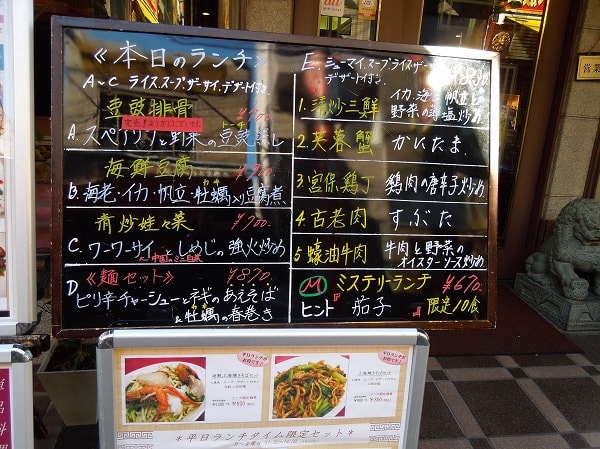 《本日のランチ》
A~C ライス.スープ.ザーサイ.デザート付き.
豆豉排骨
完売!ありがとうございます
A. スペアリブと野菜の豆豉蒸し
海鮮豆腐
B. 海老・イカ・帆立・牡蠣入り豆腐煮
青炒娃々菜 ¥700
C. ワーワーサイとしめじの強火炒め
~中国のミニ白菜
《麺セット》 ¥870
D ピリ辛チャーシューとネギのあえそば
&牡蠣の春巻き
E. シューマイ.スープ.ライス.ザーサイ
デザート付き.
1. 清炒三鮮 イカ.海老.帆立と
野菜の塩炒め
2. 芙蓉蟹 かにたま
3. 宮保鶏丁 鶏肉の唐辛子炒め
4. 古老肉 すぶた
5 蠔油牛肉 牛肉と野菜の
オイスターソース炒め
M ミステリーランチ ¥670.
ヒント『 茄子 』 限定10食
営業
平日ランチが
お得です!
平日ランチが
お得です!
*平日ランチタイム限定セット*